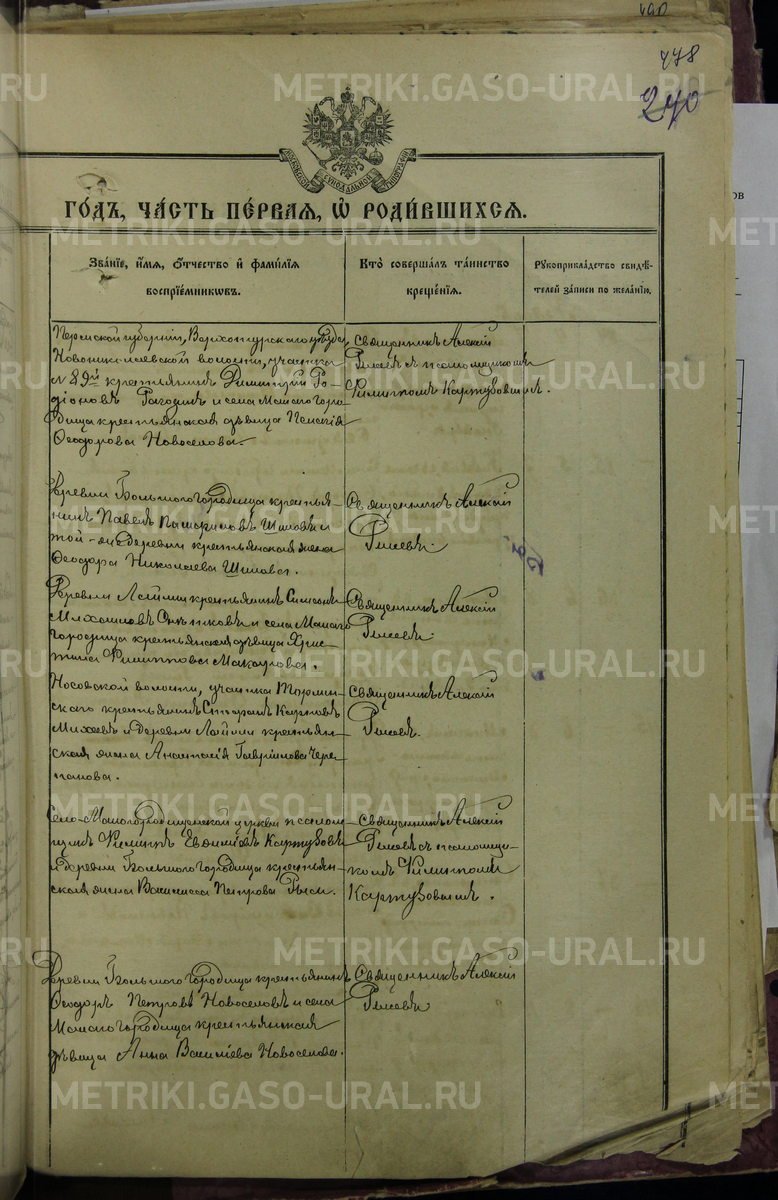 490
478
240
МОСКОВСКОЙ СѴНОДАЛЬНОЙ ТИПОГРАФІИ
ГО́ДЪ, ЧА́СТЬ ПЕ́РВАЯ, Ѡ҆ РОДИ́ВШИХСЯ.
Зва́нїе, и҆́мя, ѻ҆́тчество и҆ фами́лїя
воспрїе́мниковъ.
Кто̀ соверша́лъ та́инство
креще́нїя.
Рꙋкоприкла́дство свидѣ́-
телей за́писи по жела́нїю.
Пермской губерніи, Верхотурскаго уѣзда,
Новониколаевской волости, участка
№ 89й крестьянинъ Димитрій Ро-
діоновъ Рагозинъ и села Малаго Горо-
дища крестьянская дѣвица Пелагія
Ѳеодорова Новоселова.
Священникъ Алексій
съ псаломщикомъ
Филиппомъ Картузовымъ.
Деревни Большого Городища крестья-
нинъ Павелъ Шиловъ и
той-же деревни крестьянская жена
Ѳеодора Николаева Шилова.
Священникъ Алексій
Деревни Лайма крестьянинъ Симеонъ
Михаиловъ и села Малаго
Городища крестьянская дѣвица Хрис-
тина Филиппова Макарова.
Священникъ Алексій
Носовской волости, участка
крестьянинъ Карповъ
Михѣевъ и деревни Лайма крестьян-
ская жена Анастасія Гавріилова Чере-
панова.
Священникъ Алексій
Село-Малогородищенской церкви псалом-
щикъ Филиппъ Евѳиміевъ Картузовъ
и деревни Большого Городища крестьян-
ская жена Василисса Петрова
Священникъ Алексій
съ псаломщи-
комъ Филиппомъ
Картузовымъ.
Деревни Большого Городища крестьянинъ
Ѳеодоръ Петровъ Новоселовъ и села
Малаго Городища крестьянская
дѣвица Анна Василіева Новоселова.
Священникъ Алексій
METRIKI.GASO-URAL.RU